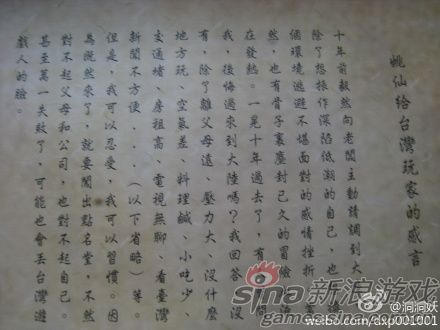 姚仙給台灣玩家的感言
十年前毅然向老闆主動請調到大
除了想振作深陷低潮的自己，也
個環境逃避不堪面對的感情挫折
然，也有骨子裏塵封已久的冒險
在發熱。一晃十年過去了，有 問
我，後悔過來到大陸嗎？我回答沒
有，除了離父母遠、壓力大、沒什麼
地方玩、空氣差、料理鹹、小吃少、
交通堵、房租高、電視無聊、看臺灣
新聞不方便....（以下省略）等。
但是，我可以忍受，我可以習慣。因
為既然來了，就要闖出點名堂，不然
對不起父母和公司，也對不起自己。
甚至萬一失敗了，可能也會丟台灣遊
戲人的臉。
sina 新浪游戏
@洞洞妖
weibo.com/dxp001001